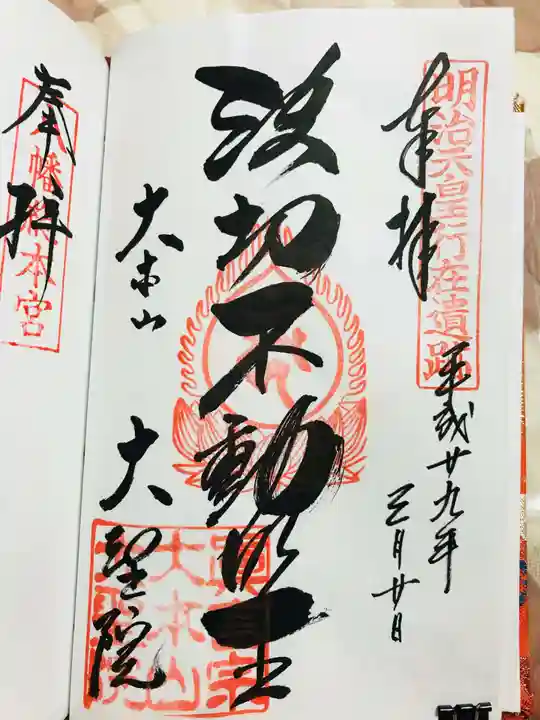 奉拝
明治天皇行在遺跡
平成廿九年
三月廿日
波切不動明王
大本山
大聖院
真言宗
大本山
大聖院
奉拝
八幡総本宮